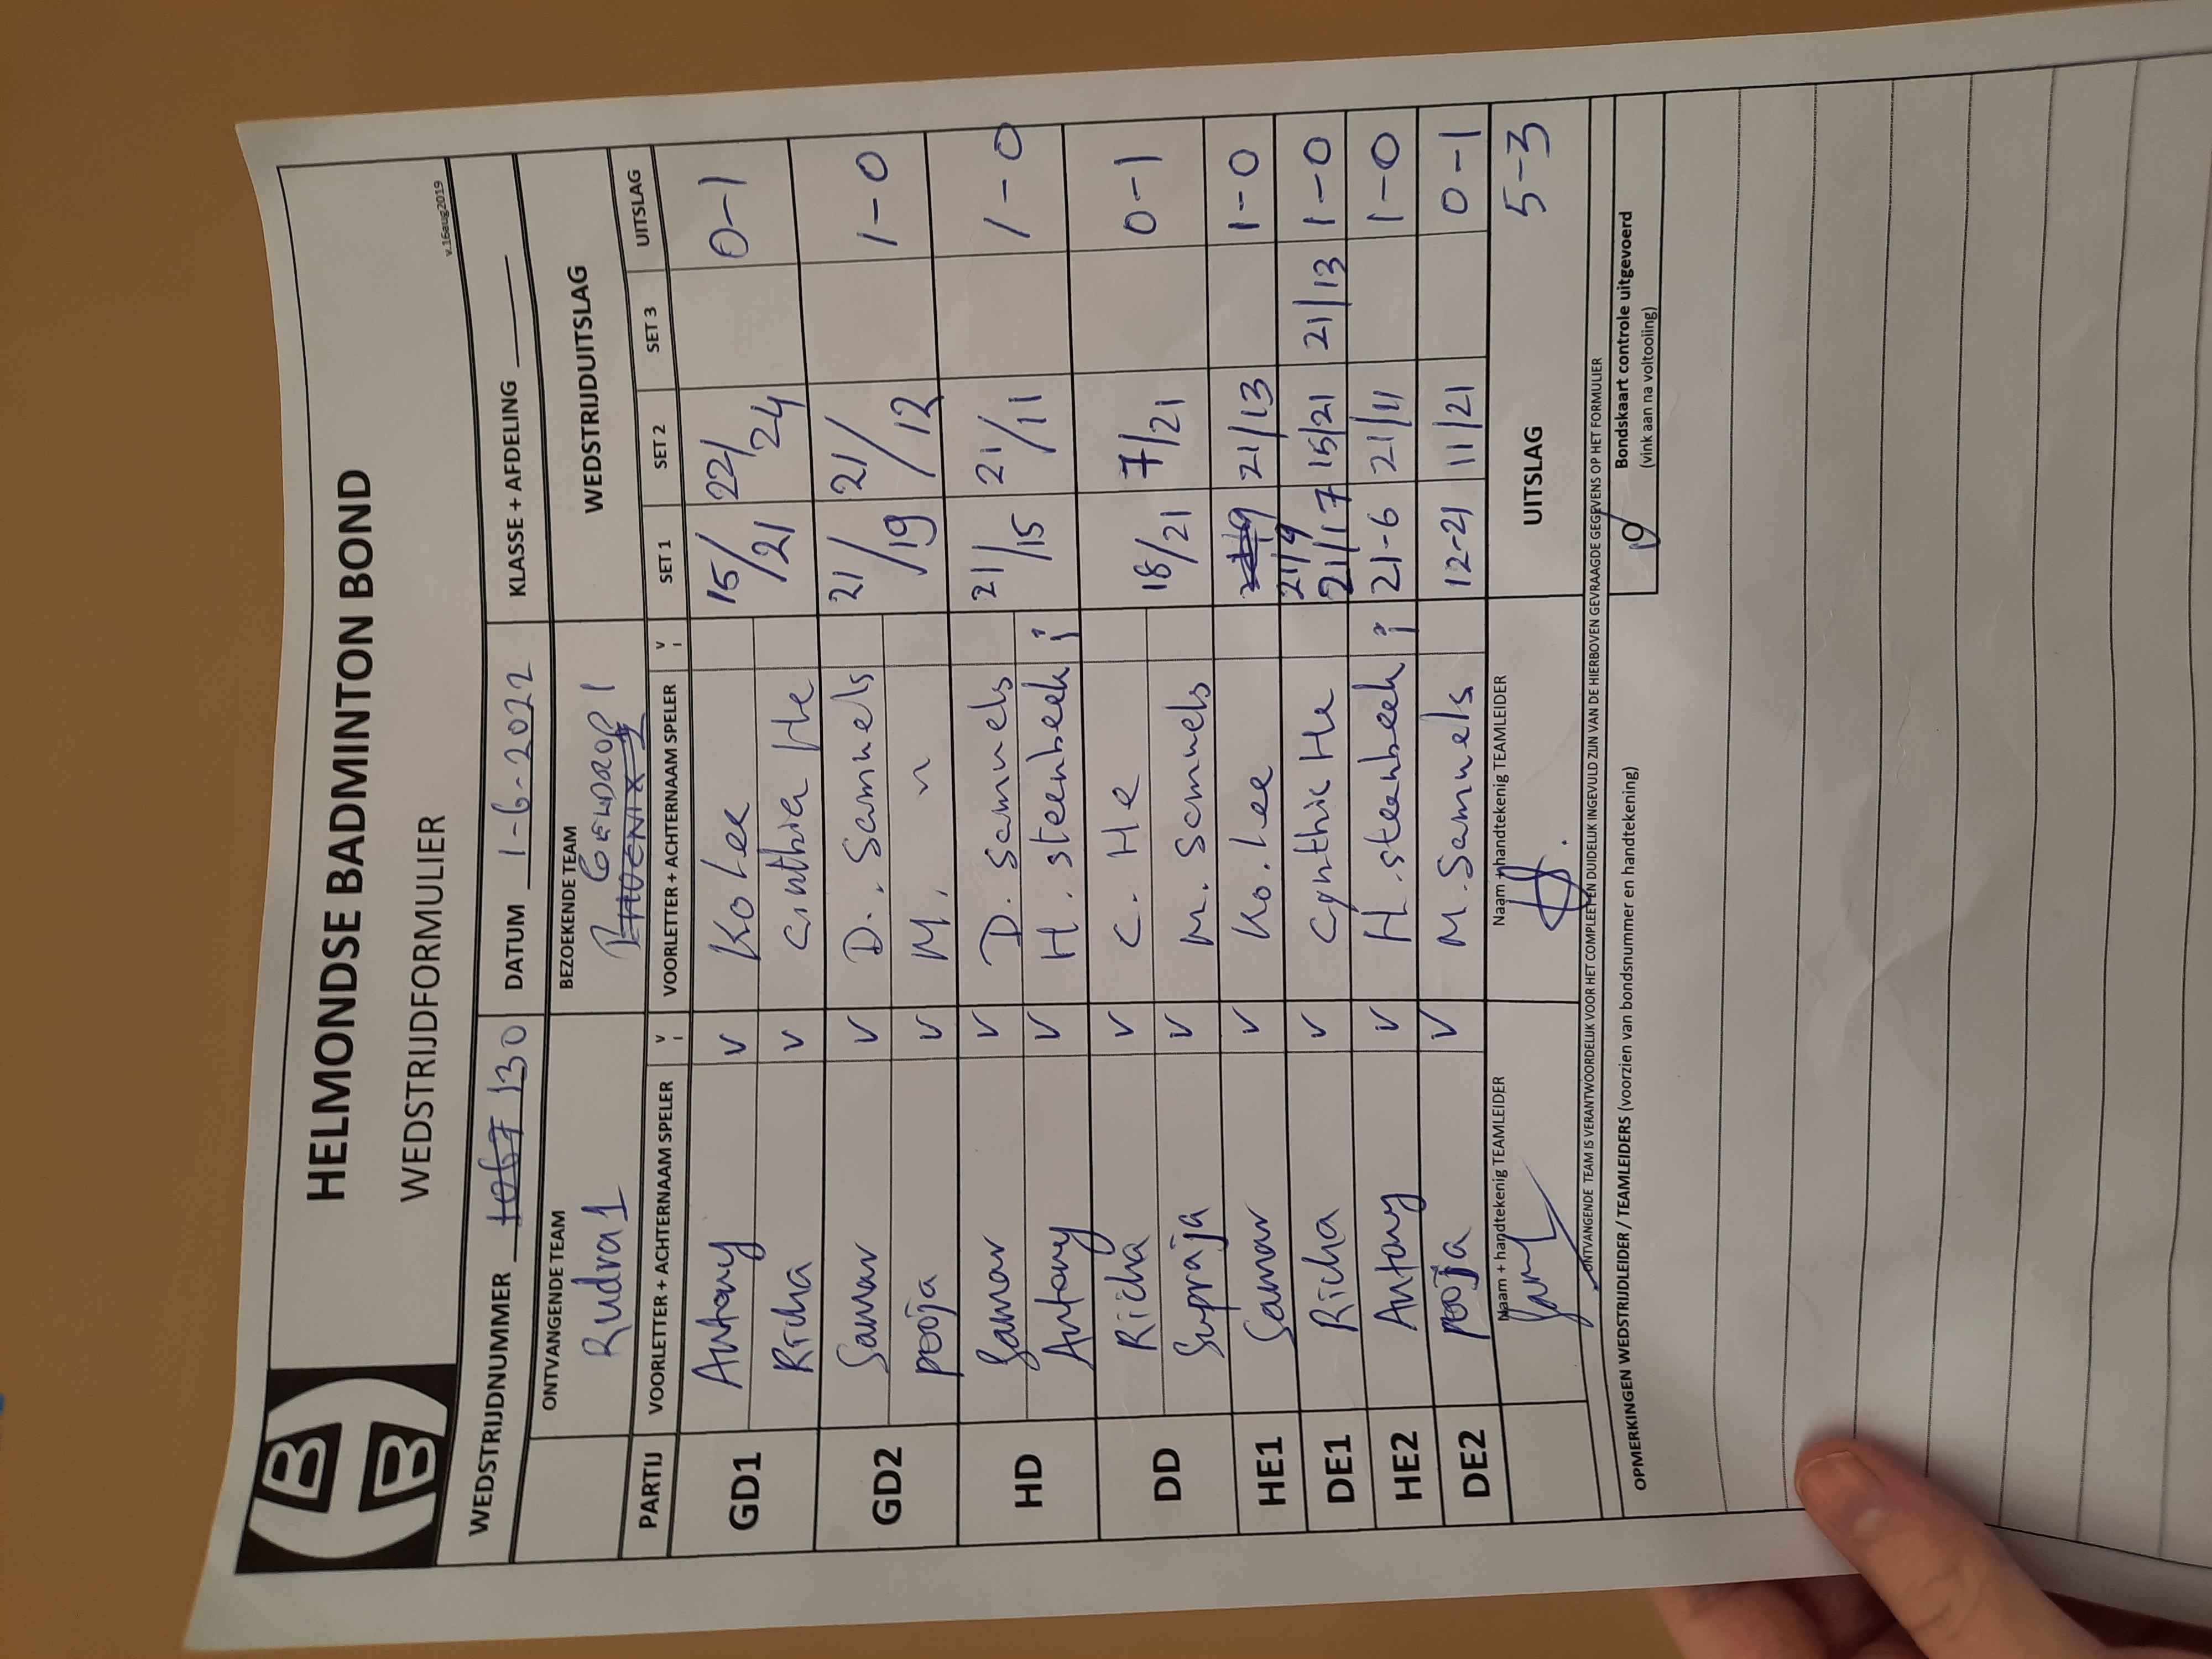 HELMONDSE BADMINTON BOND
WEDSTRIJDFORMULIER
v.16aug2019
WEDSTRIJDNUMMER 130 DATUM 1-6-2022 KLASSE + AFDELING
ONTVANGENDE TEAM BEZOEKENDE TEAM WEDSTRIJDUITSLAG
Rudra 1 1
PARTIJ VOORLETTER + ACHTERNAAM SPELER V I VOORLETTER + ACHTERNAAM SPELER V I SET 1 SET 2 SET 3 UITSLAG
GD1 Antony V Ko Lee 15/21 22/24 0-1
Richa V Cinthia He
GD2 Samar V D. Samuels 21/19 21/12 1-0
Pooja V M. "
HD Samar V D. Samuels 21/15 21/11 1-0
Antony V H. Steenbeek i
DD Richa V C. He 18/21 7/21 0-1
Supraja V M. Samuels
HE1 Samar V Ko. Lee 21/9 21/13 1-0
DE1 Richa V Cynthie He 21/17 15/21 21/13 1-0
HE2 Antony V H. Steenbeek i 21-6 21/11 1-0
DE2 Pooja V M. Samuels 12-21 11/21 0-1
Naam + handtekenig TEAMLEIDER Naam + handtekenig TEAMLEIDER UITSLAG 5-3
ONTVANGENDE TEAM IS VERANTWOORDELIJK VOOR HET COMPLEET EN DUIDELIJK INGEVULD ZIJN VAN DE HIERBOVEN GEVRAAGDE GEGEVENS OP HET FORMULIER
OPMERKINGEN WEDSTRIJDLEIDER / TEAMLEIDERS (voorzien van bondsnummer en handtekening)
Bondskaart controle uitgevoerd
(vink aan na voltooiing)